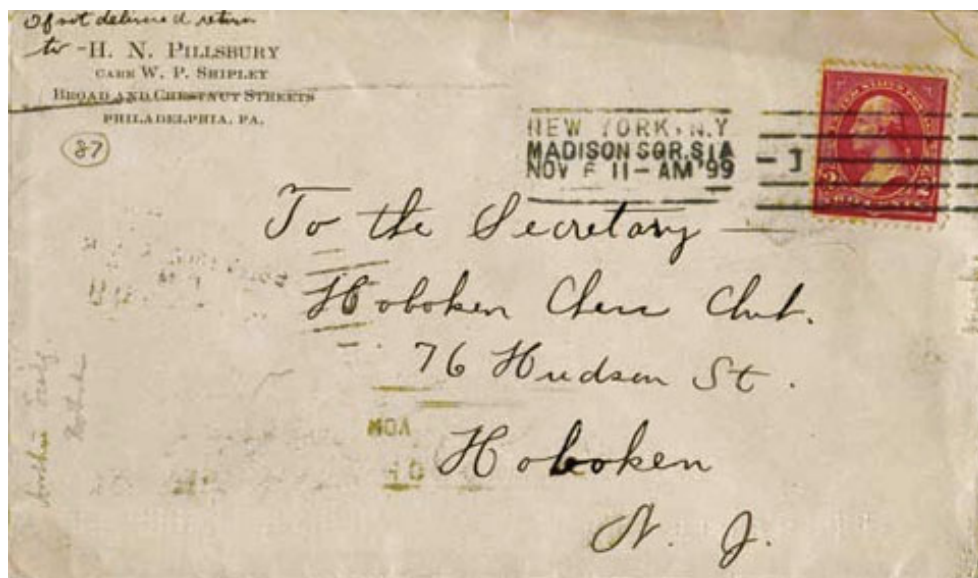 If not delivered return
to - H. N. PILLSBURY
CARE W. P. SHIPLEY
BROAD AND CHESTNUT STREETS
PHILADELPHIA, PA.
87
NEW YORK, N.Y
MADISON SQR. STA
NOV 6 11-AM '99
1
To the Secretary
Hoboken Chess Club.
76 Hudson St.
Hoboken
N. J.
NOV